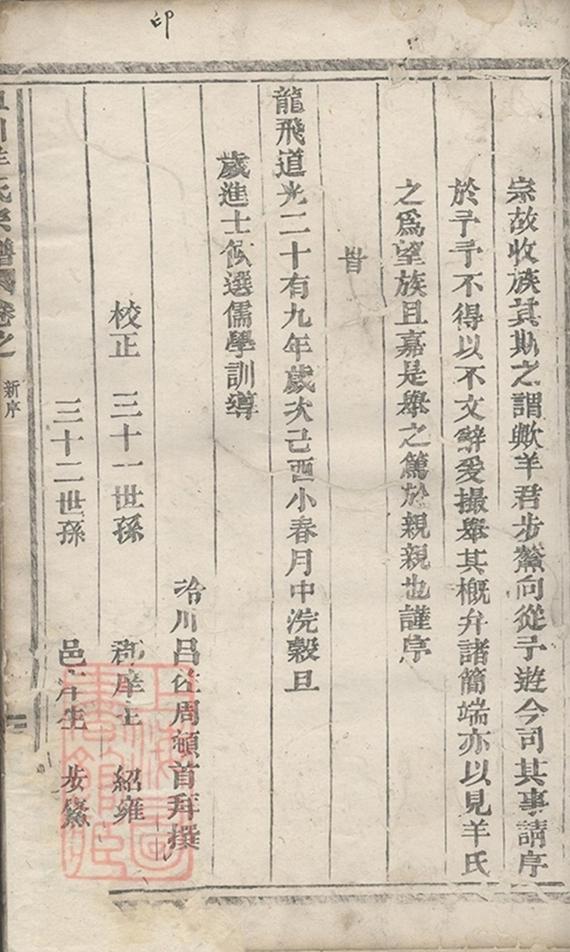 印
宗故收族其斯之謂歟羊君步鰲向從予遊今司其事請序
於予予不得以不文辭爰撮舉其槪弁諸簡端亦以見羊氏
之爲望族且嘉是舉之篤於親親也謹序
旹
龍飛道光二十有九年歲次己酉小春月中浣穀旦
歲進士候選儒學訓導
洽川呂佐周頓首拜撰
校正 三十一世孫 郡庠生 紹雍
三十二世孫 邑庠生 步鰲
羊氏宗譜 卷之
新序